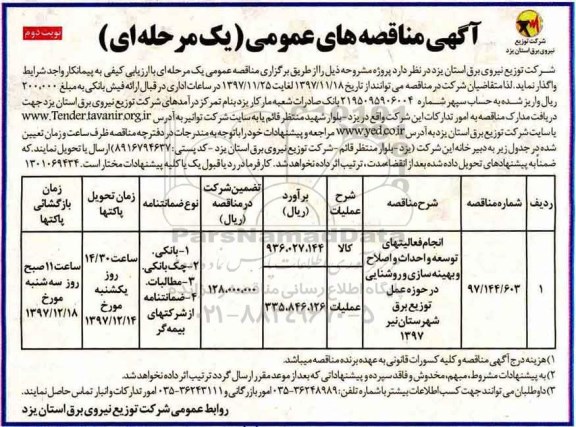 آگهی مناقصه های عمومی (یک مرحله ای)
نوبت دوم
شرکت توزیع
نیروی برق استان یزد
شرکت توزیع نیروی برق استان یزد در نظر دارد پروژه مشروحه ذیل را از طریق برگزاری مناقصه عمومی یک مرحله ای با ارزیابی کیفی به پیمانکار واجد شرایط
واگذار نماید. لذا متقاضیان شرکت در مناقصه می توانند از تاریخ ۱۳۹۷/۱۱/۱۸ لغایت ۱۳۹۷/۱۱/۲۵ در ساعات اداری در قبال ارائه فیش بانکی به مبلغ ۲۰۰،۰۰۰
ریال واریز شده به حساب سپهر شماره ۰۲۱۹۵۰۹۵۹۰۶۰۰۴ بانک صادرات شعبه مارکار یزد بنام تمرکز درآمدهای شرکت توزیع نیروی برق استان یزد جهت
دریافت مدارک مناقصه به امور تدارکات این شرکت واقع در یزد- بلوار شهید منتظر قائم یا به سایت شرکت توانیر به آدرس www.Tender.tavanir.org.ir
یا سایت شرکت توزیع برق استان یزد به آدرس www.yed.co.ir مراجعه و پیشنهادات خود را با توجه به مندرجات در دفترچه مناقصه ظرف ساعت و زمان تعیین
شده در جدول زیر به دبیرخانه این شرکت (یزد- بلوار منتظر قائم - شرکت توزیع نیروی برق استان یزد - کدپستی: ۸۹۱۶۷۹۴۶۳۷) ارسال یا تحویل نمایند. که
ضمناً به پیشنهادهای تحویل داده شده بعد از انقضاء مدت، ترتیب اثر داده نخواهد شد. کارفرما در رد یا قبول یک یا کلیه پیشنهادات مختار است. ۱۳۰۱۰۶۹۴۳۴
ردیف | شماره مناقصه | شرح مناقصه | شرح عملیات | برآورد (ریال) | تضمین شرکت در مناقصه (ریال) | نوع ضمانتنامه | زمان تحویل پاکتها | زمان بازگشائی پاکتها
۱ | ۹۷/۱۴۴/۶۰۳
انجام فعالیتهای
توسعه و احداث و اصلاح
و بهینه سازی و روشنایی
در حوزه عمل
توزیع برق
شهرستان نیر
۱۳۹۷
کالا | ۹۳۶،۰۲۷،۱۴۴
عملیات | ۳۳۵،۸۴۶،۱۲۶
۱۲۸،۰۰۰،۰۰۰
۱-بانکی.
۲-چک بانکی.
۳-مطالبات.
۴-ضمانتنامه
از شرکتهای
بیمه گر
ساعت ۱۴/۳۰
روز
یکشنبه
مورخ
۱۳۹۷/۱۲/۱۴
ساعت ۱۱ صبح
روز سه شنبه
مورخ
۱۳۹۷/۱۲/۱۸
ParsNamadData
پایگاه اطلاع رسانی مناقصه و مزایده
۰۲۱-۸۸۳۴۹۶۷۰-۵
۱) هزینه درج آگهی مناقصه و کلیه کسورات قانونی به عهده برنده مناقصه میباشد.
۲) به پیشنهادات مشروط، مبهم، مخدوش و فاقد سپرده و پیشنهاداتی که بعد از موعد مقرر ارسال گردد ترتیب اثر داده نخواهد شد.
۳) داوطلبان می توانند جهت کسب اطلاعات بیشتر با شماره تلفن: ۳۶۲۴۸۹۸۹-۰۳۵ امور بازرگانی و ۳۶۲۴۳۱۱۱-۰۳۵ امور تدارکات و انبار تماس حاصل نمایند.
روابط عمومی شرکت توزیع نیروی برق استان یزد